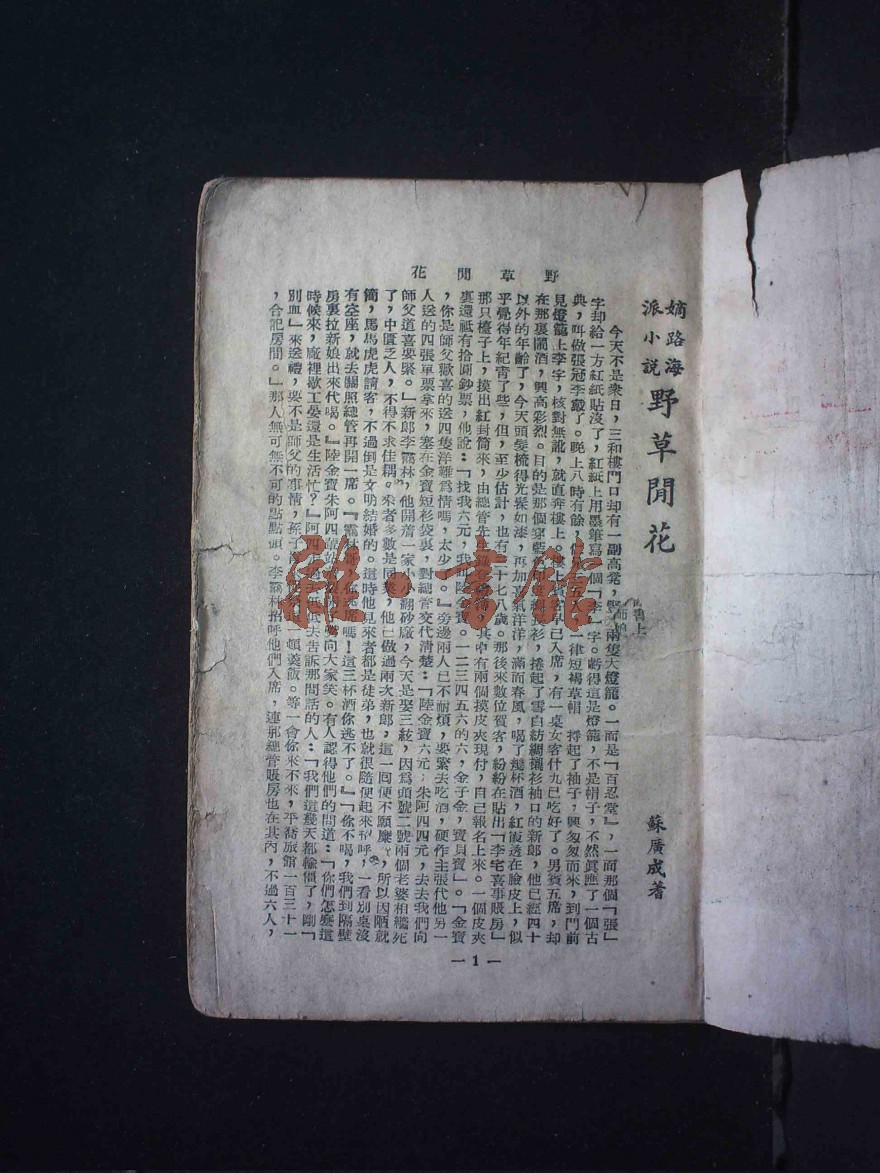 野草閒花
嫡路海
派小說
野草閒花
蘇廣成著
今天不是衆日，三和樓門口却有一副高凳，兩隻大燈籠。一面是「百忍堂」，一面那個「張」
字却給一方紅紙貼沒了，紅紙上用墨筆寫個「李」字。虧得這是燈籠，不是帽子，不然眞應了一個古
典，叫做張冠李戴了。晚上八時有餘，一律短褐草帽，捋起了袖子，興匆匆而來，到門前
見燈籠上李字，核對無訛，就直奔樓上。早已入席，有一桌女客什九已吃好了。男賓五席，却
在那裏鬧酒，興高彩烈。目的是那個穿藍衫，捲起了雪白紡綢襯衫袖口的新郞，他已經四十
以外的年齡了，今天頭髮梳得光髹如漆，再加喜氣洋洋，滿面春風，喝了幾杯酒，紅液透在臉皮上，似
乎覺得年紀靑了些，但，至少估計，也有三十七八歲。那後來數位賀客，紛紛在貼出「李宅喜事賬房」
那只檯子上，摸出紅封筒來，由總管先生其中有兩個摸皮夾現付，自己報名上來。一個皮夾
裏還祗有拾圓鈔票，他說：「找我六元，我叫陸金寶。一二三四五六的六，金子金，寶貝寶」。「金寶
，你是師父歡喜的送四隻洋難爲情嗎，太少了。』旁邊兩人已不耐煩，要緊去吃酒，硬作主張代他另一
人送的四張單票拿來，塞在金寶短衫袋裏，對總管交代淸楚：「陸金寶六元，朱阿四四元，去去我們向
師父道喜要緊。」新郞李霭林，他開着一家小小翻砂廠，今天是娶三絃，因爲頭號二號兩個老婆相繼死
了，中匱乏人，不得不求佳耦。來者多數是同業，他已做過兩次新郞，這一回便不願糜，所以因陋就
簡，馬馬虎虎請客，不過倒是文明結婚的。這時他見來者都是徒弟，也就很隨便起來招呼，一看別桌沒
有空座，就去關照總管再開一席。『霭林，你逃席嗎！這三杯酒你逃不了。』「你不喝，我們到隔壁
房裏拉新娘出來代喝。』陸金寶朱阿四向大家笑。有人認得他們的問道：「你們怎麼這
時候來，廠裡歇工晏還是生活忙？』阿四低低去告訴那問話的人：「我們這幾天都輸慣了，剛「
別血」來送禮，要不是師父的事情，孫子一頓羮飯。等一會你來不來，平喬旅館一百三十一
，合記房間。」那人無可無不可的點點頭。李霭林招呼他們入席，連那總管賬房也在其內，不過六人，
一1一
雜·書館